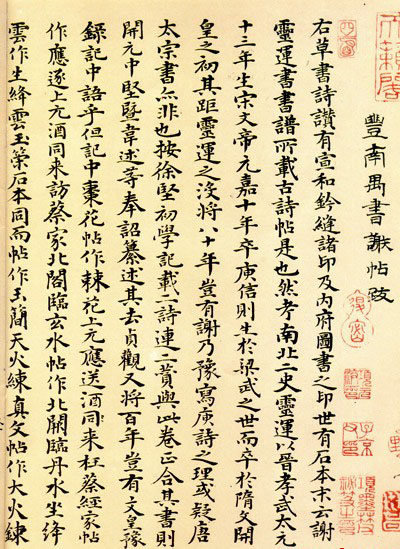 天籟閣
豐南禺書謝帖跋
子京父印
右草書詩讚有宣和鈐縫諸印及內府圖書之印世有石本末云謝
靈運書書譜所載古詩帖是也然考南北二史靈運以晉孝武太元
十三年生宋文帝元嘉十年卒庾信則生於梁武之世而卒於隋文開
皇之初其距靈運之沒將八十年豈有謝乃豫寫庾詩之理或疑唐
太宗書亦非也按徐堅初學記載二詩連二贊與此卷正合其書則
開元中堅暨韋述等奉詔纂述其去貞觀又將百年豈有文皇豫
錄記中語乎但記中棗花帖作棘花上元應送酒同来枉蔡經家帖
作應逐上元酒同来訪蔡家北閣臨玄水帖作北闕臨丹水坐絳
雲作生絳雲玉策石本同而帖作玉簡天火練真文帖作大火鍊